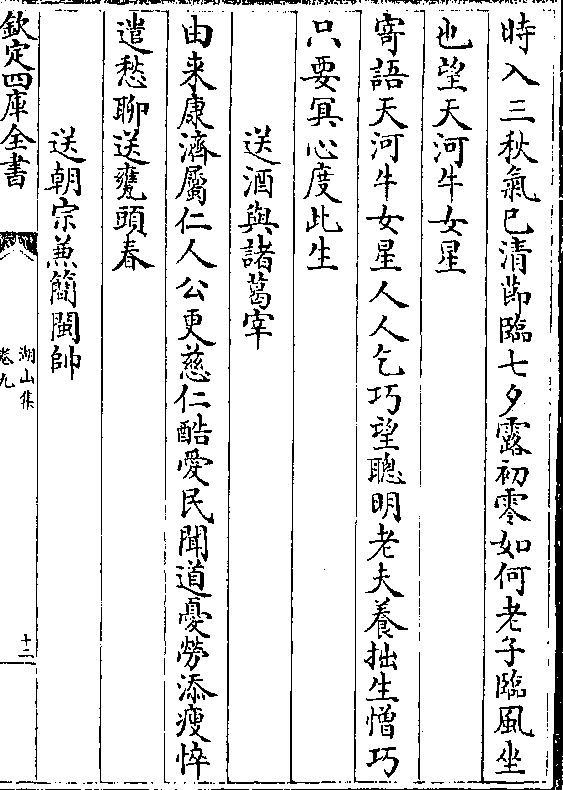 時入三秋氣已清節臨七夕露初零如何老子臨風坐
也望天河牛女星
寄語天河牛女星人人乞巧望聰明老夫養拙生憎巧
只要冥心度此生
送酒與諸葛宰
由来康濟屬仁人公更慈仁酷愛民聞道憂勞添瘦悴
遣愁聊送甕頭春
送朝宗兼簡閩帥
欽定四庫全書
湖山集
卷九
十二